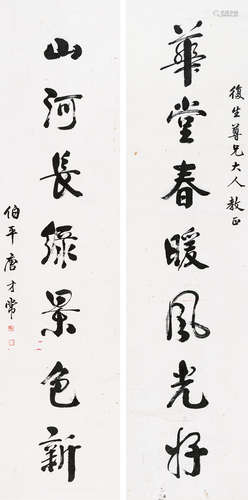 復生尊兄大人教正
華堂春暖風光好
山河長綠景色新
伯平唐才常